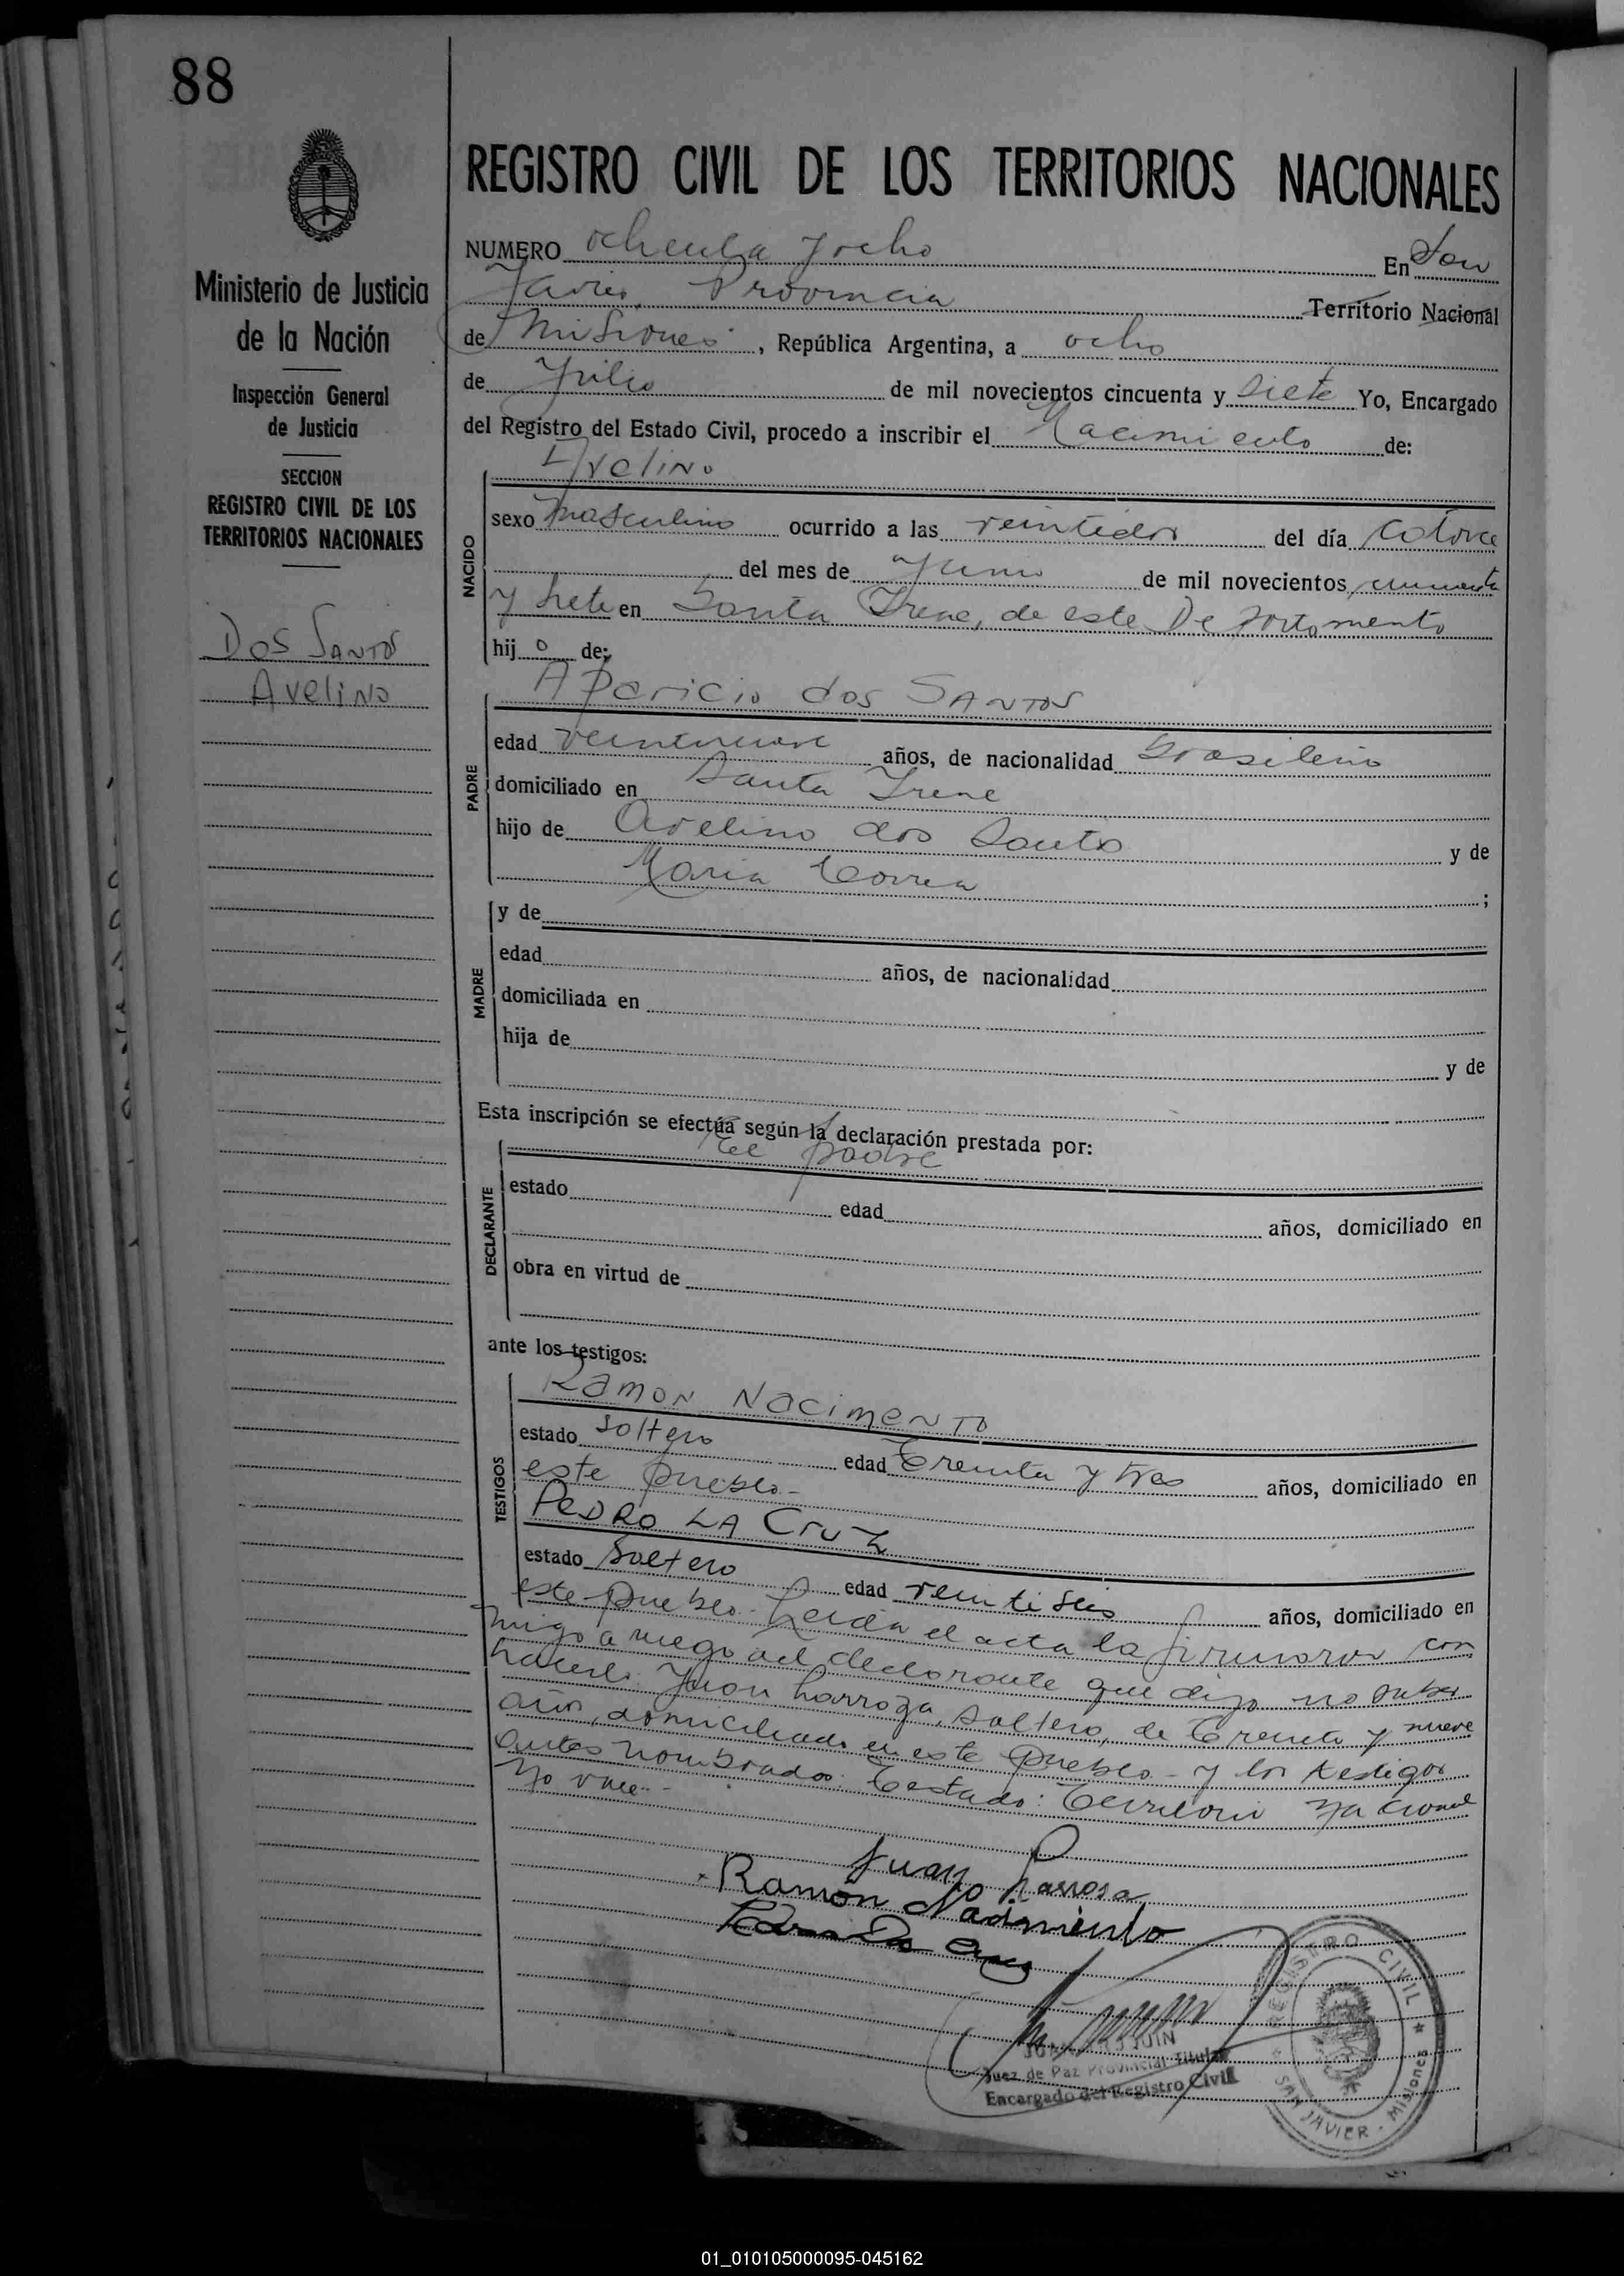 88
REGISTRO CIVIL DE LOS TERRITORIOS NACIONALES
Ministerio de Justicia
de la Nación
Inspección General
de Justicia
SECCION
REGISTRO CIVIL DE LOS
TERRITORIOS NACIONALES
Dos Santos
Avelino
NUMERO ochenta y ocho En San
Javier, Provincia Territorio Nacional
de Misiones, República Argentina, a ocho
de Julio de mil novecientos cincuenta y siete Yo, Encargado
del Registro del Estado Civil, procedo a inscribir el Nacimiento de:
Avelino
NACIDO
sexo masculino ocurrido a las veintidos del día catorce
del mes de Junio de mil novecientos cincuenta
y siete en Santa Irene, de este Departamento
hijo de:
Aparicio dos Santos
PADRE
edad veintinueve años, de nacionalidad brasileño
domiciliado en Santa Irene
hijo de Avelino dos Santos y de
Maria Correa ;
MADRE
y de
edad años, de nacionalidad
domiciliada en
hija de y de
Esta inscripción se efectúa según la declaración prestada por:
El padre
DECLARANTE
estado edad años, domiciliado en
obra en virtud de
ante los testigos:
Ramon Nacimento
TESTIGOS
estado soltero edad treinta y tres años, domiciliado en
este pueblo.-
Pedro La Cruz
estado soltero edad veintiseis años, domiciliado en
este pueblo. Leida el acta la firmaron con
migo a ruego del declarante que dijo no saber
hacerlo Juan Larroza, soltero, de treinta y nueve
años, domiciliado en este pueblo - y los testigos
antes nombrados. Testado: Territorio Nacional
No vale.-
Juan Larrosa
Ramón Nacimiento
Pedro La Cruz
Juez de Paz Provincial Titular
Encargado del Registro Civil
REGISTRO CIVIL
SAN JAVIER - Misiones
01_010105000095-045162